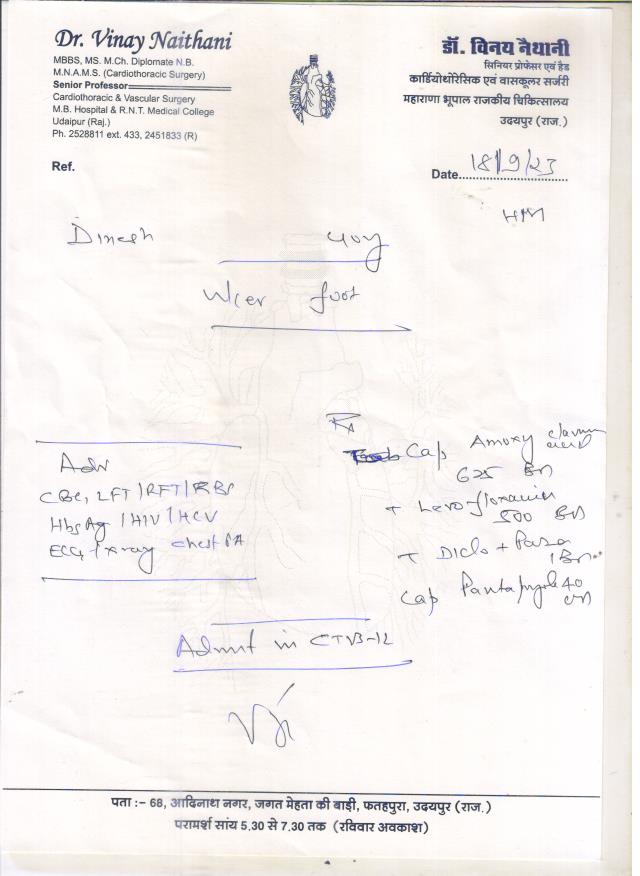 Dr. Vinay Naithani
MBBS, MS. M.Ch. Diplomate N.B.
M.N.A.M.S. (Cardiothoracic Surgery)
Senior Professor
Cardiothoracic & Vascular Surgery
M.B. Hospital & R.N.T. Medical College
Udaipur (Raj.)
Ph. 2528811 ext. 433, 2451833 (R)
डॉ. विनय नैथानी
सिनियर प्रोफेसर एवं हैड
कार्डियोथोरेसिक एवं वासकूलर सर्जरी
महाराणा भूपाल राजकीय चिकित्सालय
उदयपुर (राज.)
Ref.
Date 18/9/23
Dinesh 40y
Ulcer foot
Adv
CBC, LFT/RFT/RBS
HbsAg/HIV/HCV
ECG/xray chest PA
Rx
Cap Amoxy
625 BD
+ Levofloxacin
500
+ Diclo + Para
Cap 40
Admit in
पता :– 68, आदिनाथ नगर, जगत मेहता की बाड़ी, फतहपुरा, उदयपुर (राज.)
परामर्श सांय 5.30 से 7.30 तक (रविवार अवकाश)